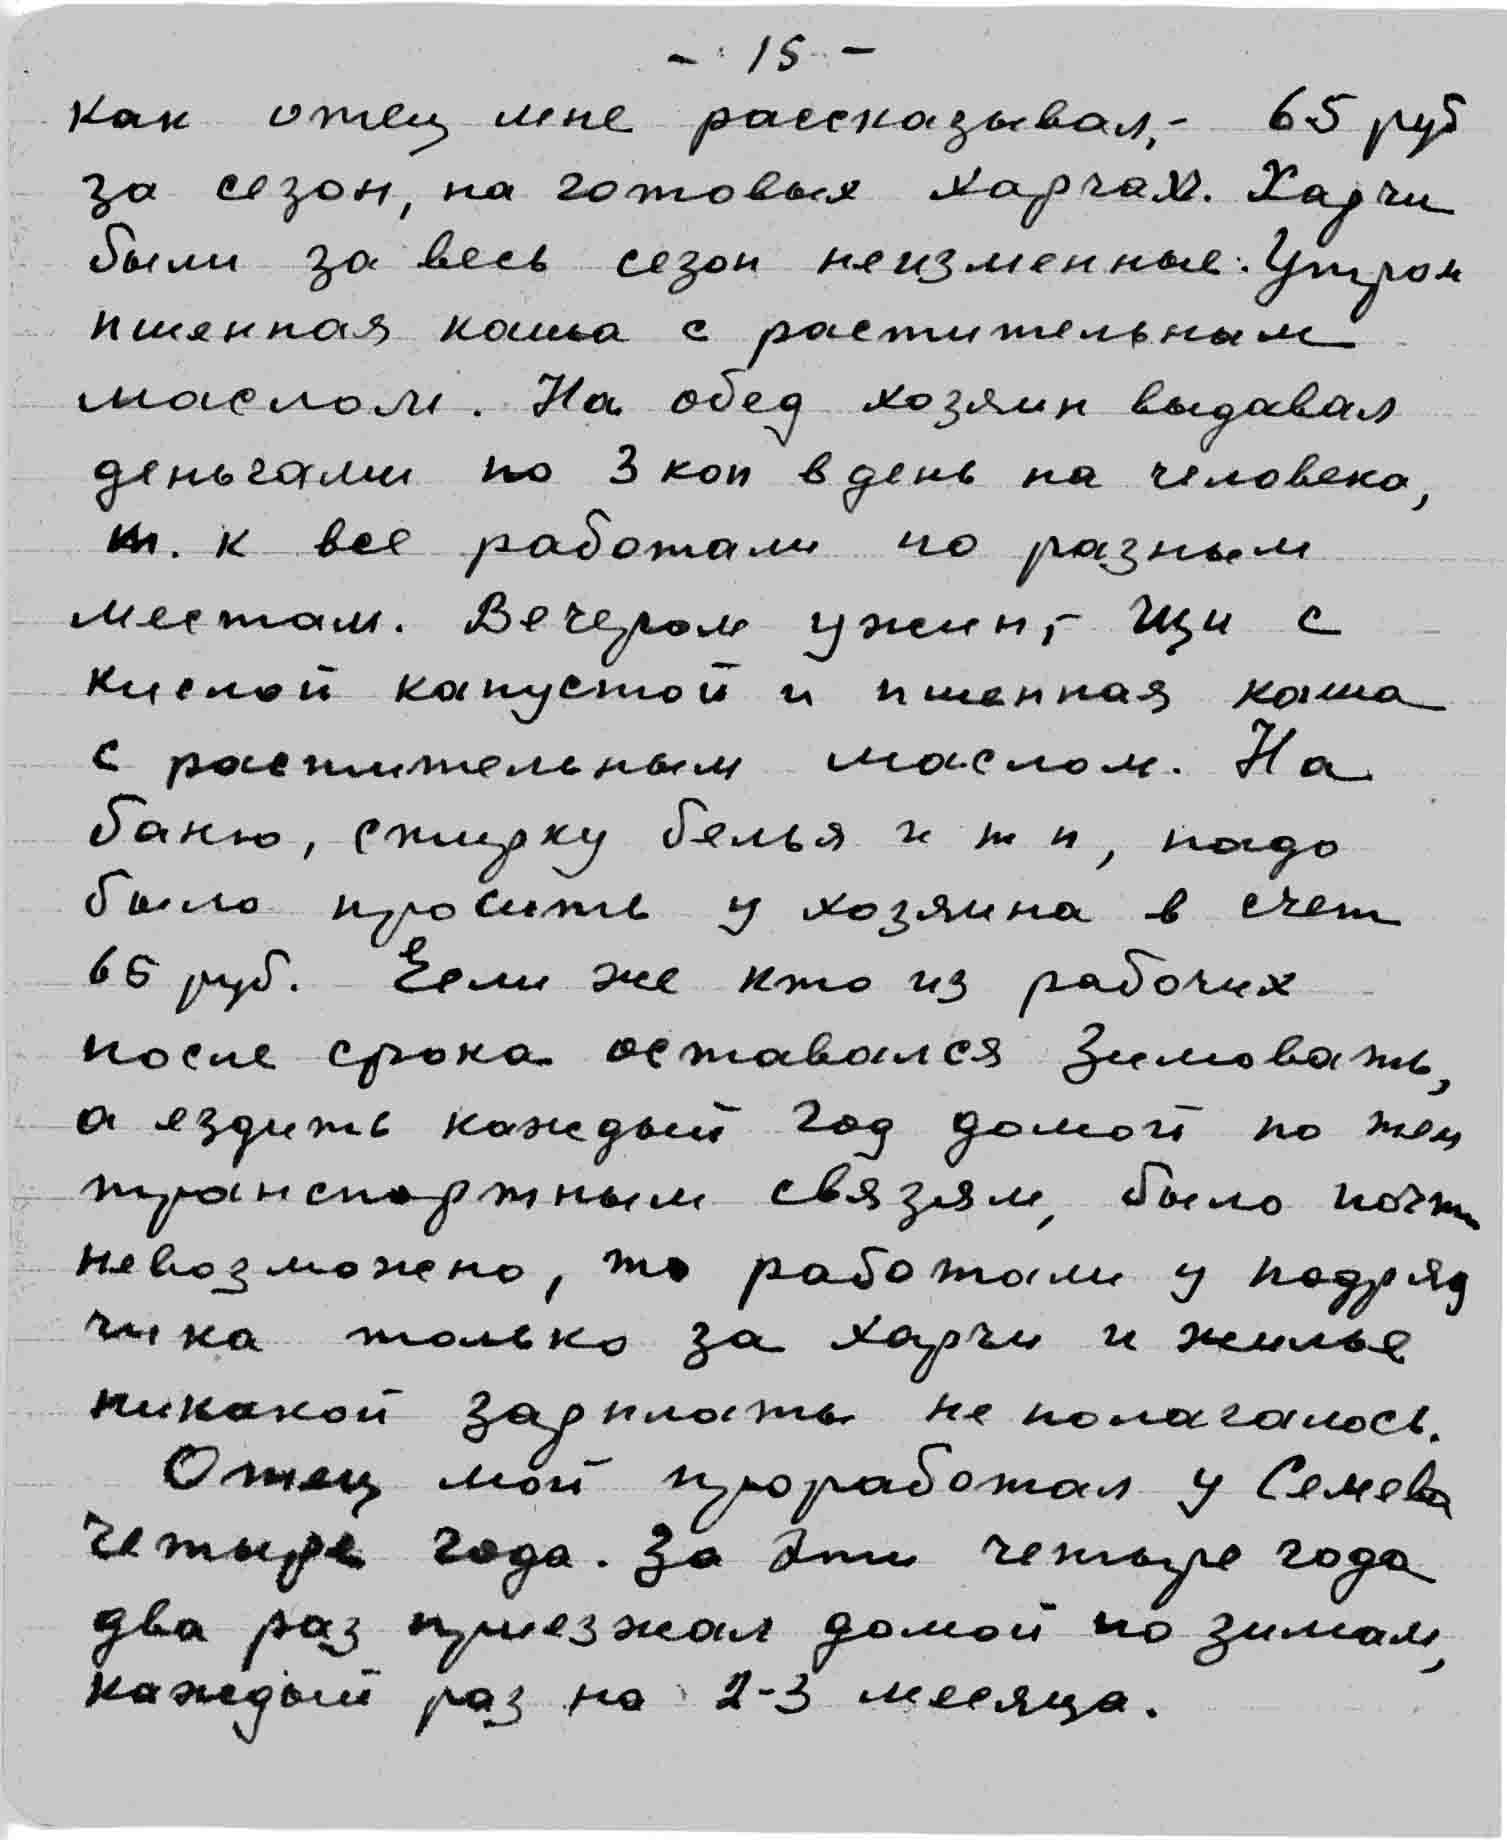 - 15 -
как отец мне рассказывал,- 65 руб
за сезон, на готовых харчах. Харчи
были за весь сезон неизменные. Утром
пшенная каша с растительным
маслом. На обед хозяин выдавал
деньгами по 3 коп в день на человека,
т. к все работали по разным
местам. Вечером ужин,- щи с
кислой капустой и пшенная каша
с растительным маслом. На
баню, стирку белья и т п, надо
было просить у хозяина в счет
65 руб. Если же кто из рабочих
после срока оставался зимовать,
а ездить каждый год домой по тем
транспортным связям, было почти
невозможено, то работали у подряд
чика только за харчи и жилье
никакой зарплаты не полагалось.
Отец мой проработал у Семева
четыре года. За эти четыре года
два раз приезжал домой по зимам,
каждый раз на 2-3 месяца.